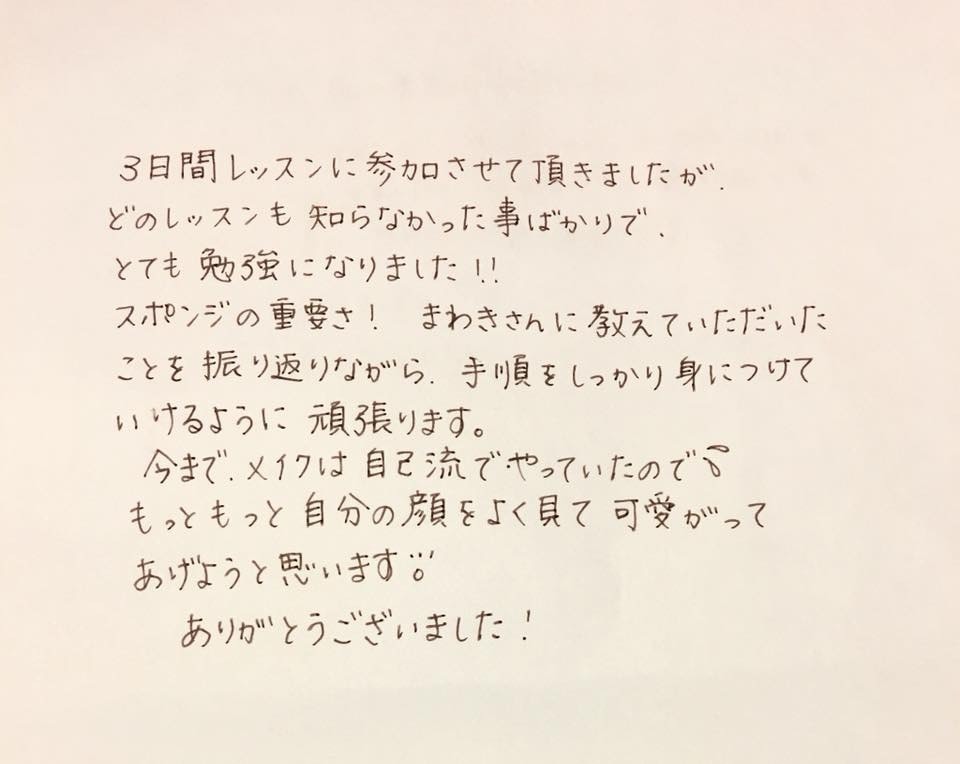 3日間レッスンに参加させて頂きましたが、
どのレッスンも知らなかった事ばかりで、
とても勉強になりました!!
スポンジの重要さ! まわきさんに教えていただいた
ことを振り返りながら、手順をしっかり身につけて
いけるように頑張ります。
今まで、メイクは自己流でやっていたので
もっともっと自分の顔をよく見て可愛がって
あげようと思います
ありがとうございました!